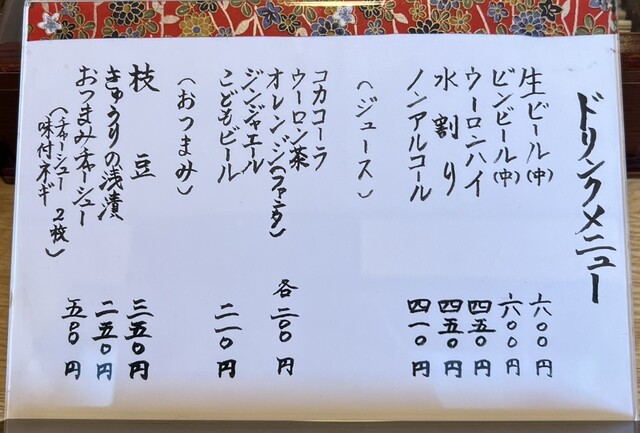 ドリンクメニュー
生ビール(中) 六〇〇円
ビンビール(中) 六〇〇円
ウーロンハイ 四五〇円
水割り 四五〇円
ノンアルコール 四一〇円
(ジュース)
コカコーラ
ウーロン茶
オレンジ(ファンタ) 各二〇〇円
ジンジャエール
こどもビール 二一〇円
(おつまみ)
枝豆 三五〇円
きゅうりの浅漬 二五〇円
おつまみチャーシュー 五〇〇円
(チャーシュー2枚
味付ネギ)